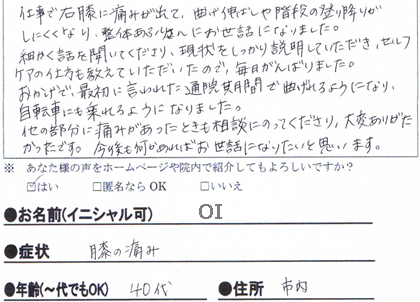 仕事で右膝に痛みが出て、曲げ伸ばしや階段の登り降りが
しにくくなり、整体あんじゅにお世話になりました。
細かく話を聞いてくださり、現状をしっかり説明していただき、セルフ
ケアの仕方も教えていただいたので、毎日がんばりました。
おかげで、最初に言われた通院期間で曲げれるようになり、
自転車にも乗れるようになりました。
他の部分に痛みがあったときも相談にのってくださり、大変ありがた
かったです。今後も何かあればお世話になりたいと思います。
※ あなた様の声をホームページや院内で紹介してもよろしいですか?
☑はい □匿名なら OK □いいえ
●お名前(イニシャル可) OI
●症状 膝の痛み
●年齢(〜代でもOK) 40代 ●住所 市内